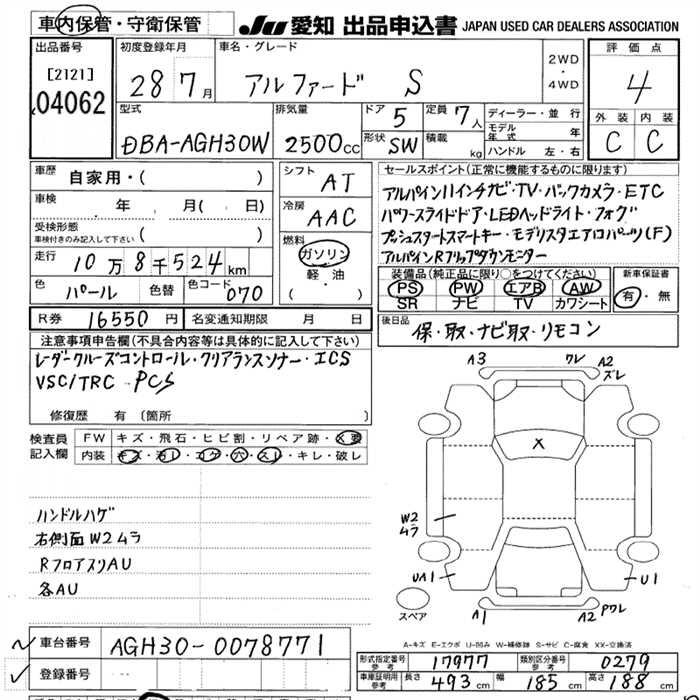 車内保管・守衛保管 JU 愛知 出品申込書 JAPAN USED CAR DEALERS ASSOCIATION
出品番号 [2121] 04062
初度登録年月 28年7月
車名・グレード アルファード S
2WD・4WD
評価点 4
外装 C 内装 C
型式 DBA-AGH30W
排気量 2500cc
ドア 5 形状 SW
定員 7人 積載 kg
ディーラー・並行
モデル年式 年
ハンドル 左・右
車歴 自家用・( )
車検 年 月( 日)
受検形態 車検付きのみ記入して下さい ( )
走行 10万8千524km
色 パール 色替 色コード 070
シフト AT
冷房 AAC
燃料 ガソリン 軽・油 ( )
セールスポイント(正常に機能するものに限ります)
アルパイン11インチナビ・TV・バックカメラ・ETC
パワースライドドア・LEDヘッドライト・フォグ
プッシュスタートスマートキー・モデリスタエアロパーツ(F)
アルパインRフリップダウンモニター
装備品(純正品に限り○をつけてください) 新車保証書
PS PW エアB AW 有・無
SR ナビ TV カワシート
R券 16550円 名変通知期限 月 日
後日品 保・取・ナビ取・リモコン
注意事項申告欄(不具合内容等は具体的に記入して下さい)
レーダークルーズコントロール・クリアランスソナー・ICS
VSC/TRC PCS
修復歴 有 (箇所 )
検査員記入欄 FW キズ・飛石・ヒビ割・リペア跡・X要
内装 キズ・汚レ・コゲ・穴・スレ・キレ・破レ
ハンドルハゲ
右側面W2ムラ
RフロアスリAU
各AU
A3 ワレ A2 ズレ
X
W2 ムラ
UA1 U1
スペア A1 A2 Pワレ
A-キズ E-エクボ U-凹み W-補修跡 S-サビ C-腐食 XX-交換済
車台番号 AGH30-0078771
登録番号
形式指定番号 参考 17977 類別区分番号 参考 0279
車庫証明用 参考 長さ 493cm 幅 185cm 高さ 188cm